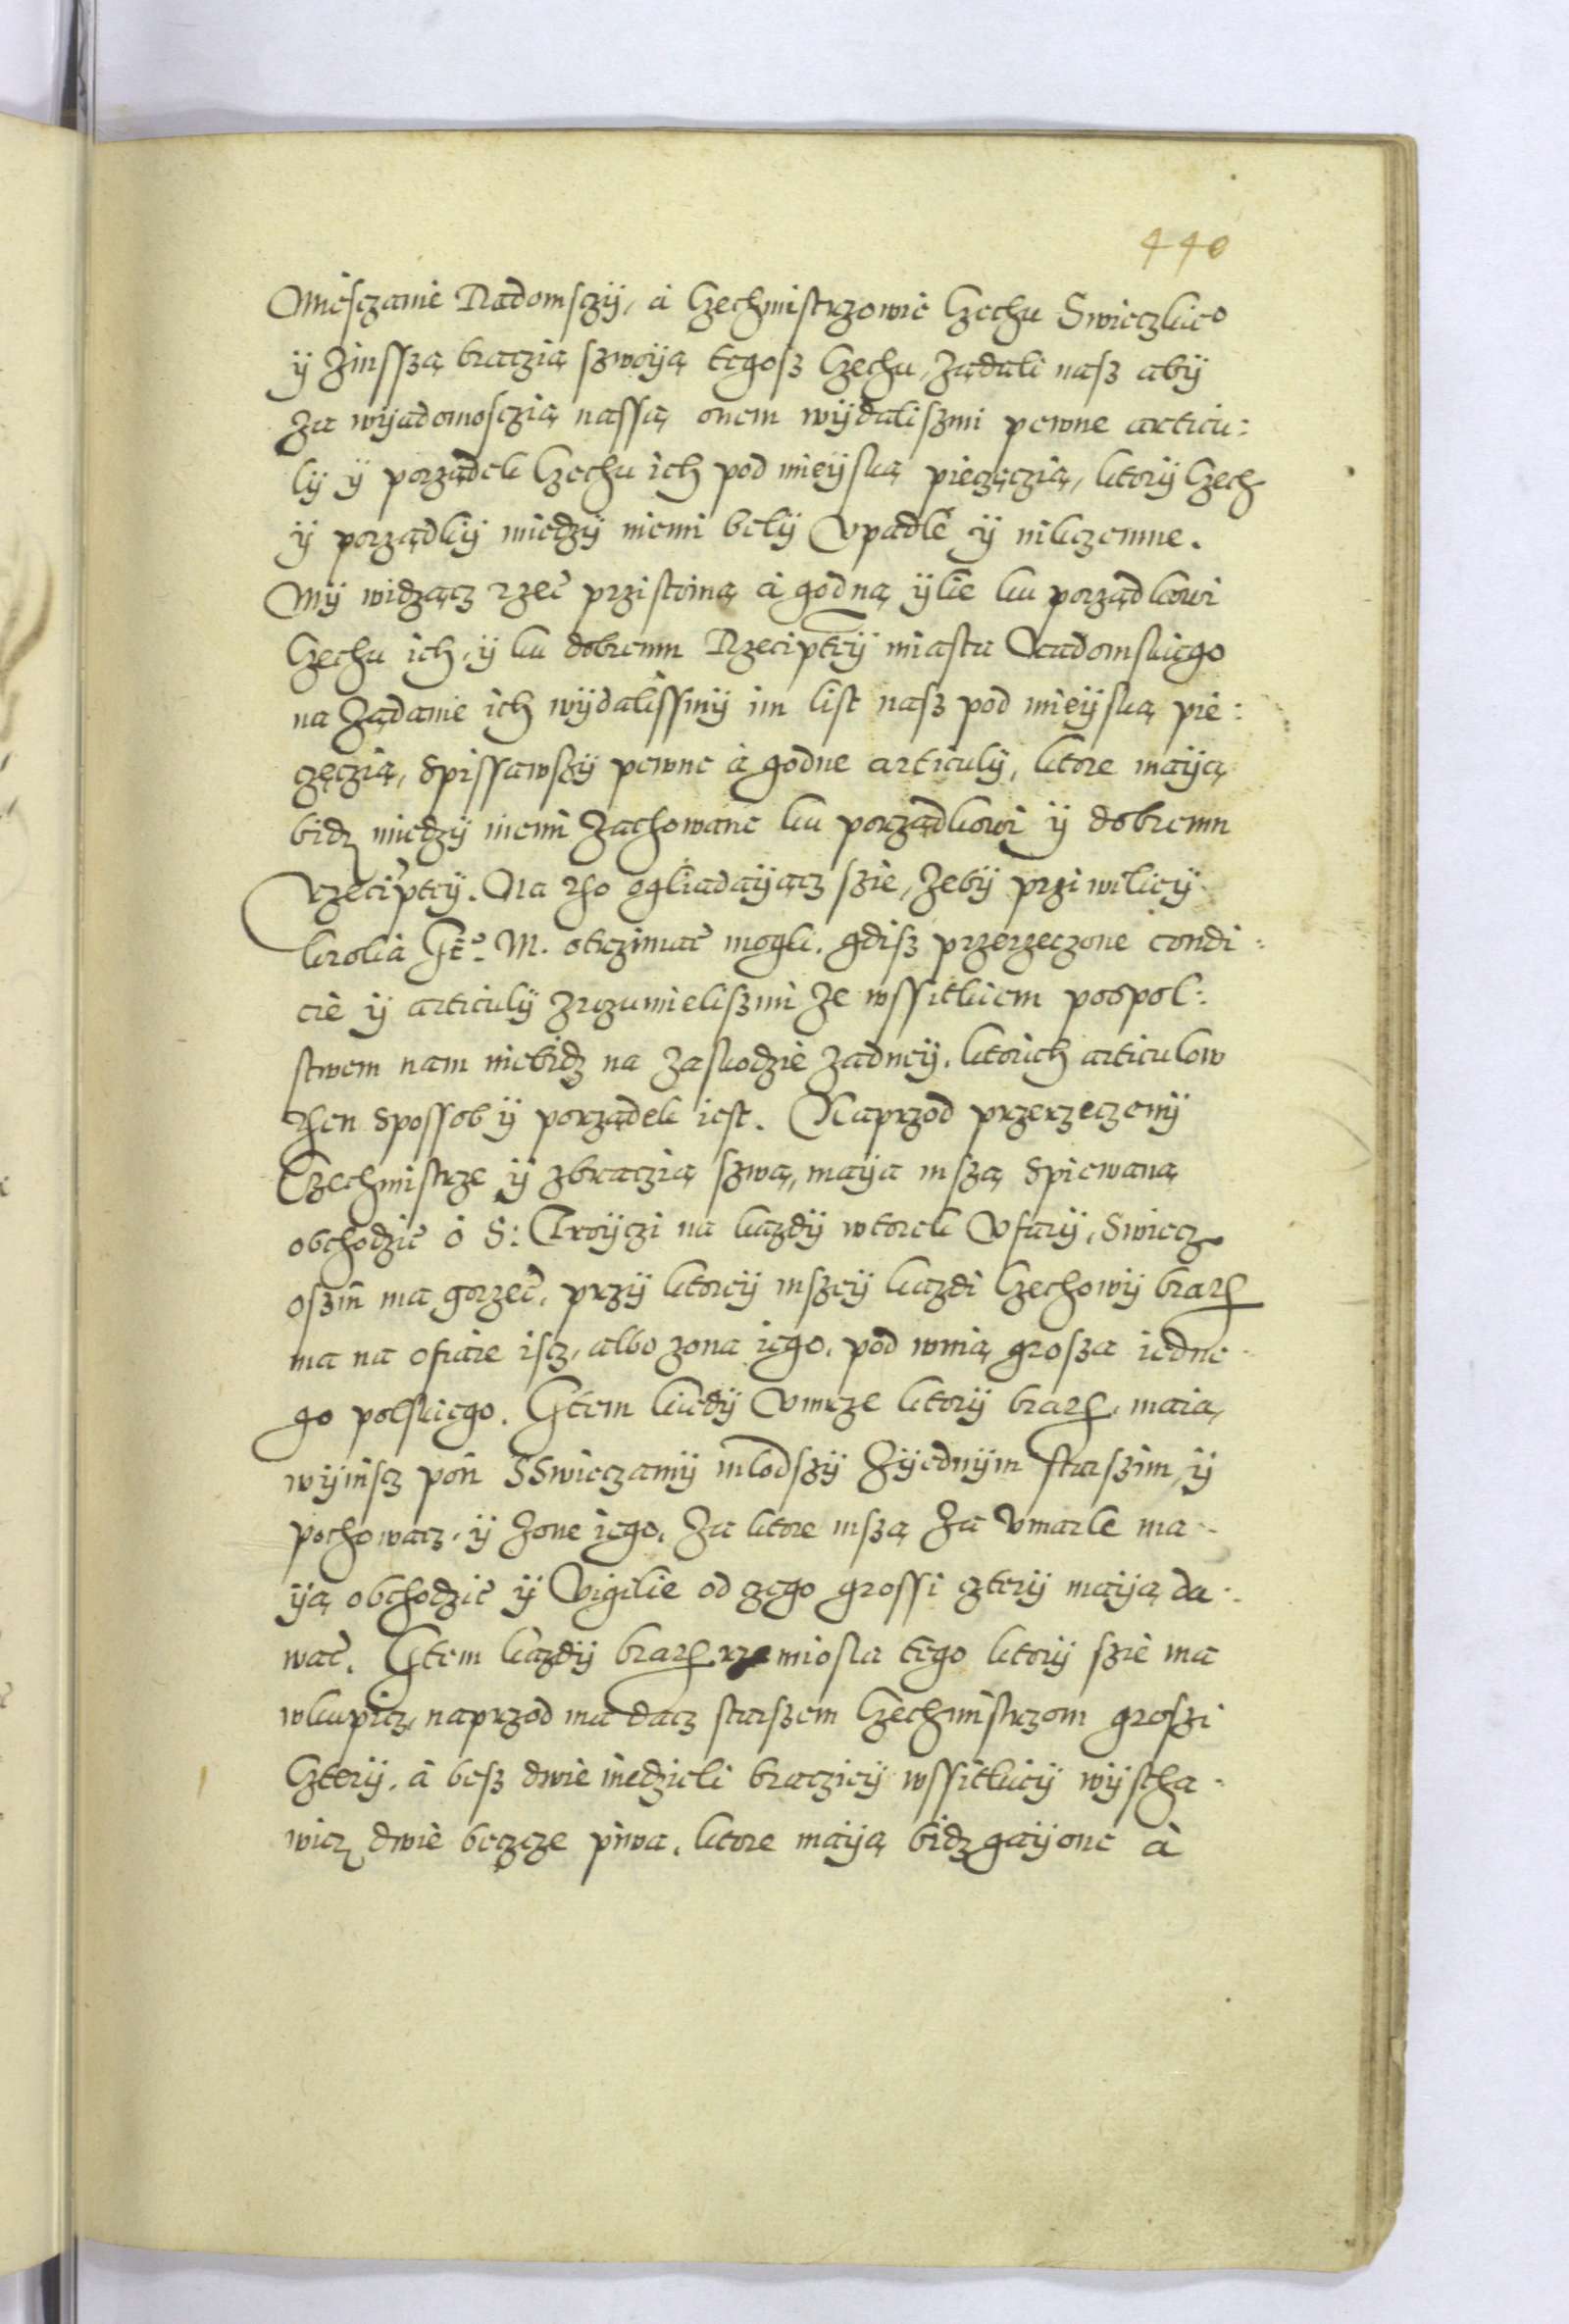 440
Miesczanie Radomsczÿ, á Czechmistrzowie Czechu Swieczkie°
ÿ Zinssżą braczią szwoÿą tegosz Czechu, Ządali nasz abÿ
Za wÿadomosczią nassą onem wÿdaliszmi pewne articu:
lÿ ÿ porządek Czechu ich pod mieÿską pieczęczią, ktorÿ Czech
ÿ porządkÿ miedzÿ niemi belÿ Vpadlé ÿ nikczemne.
Mÿ widzącz rzeć przistoiną á godną ÿlie ku porządkowi
Czechu ich, ÿ ku dobremu Rzeciptej miasta Radomskiego
na Ządanie ich wÿdalissmÿ im list nasz pod mieÿską pie:
częczią, Spissawszÿ pewne á godne articulÿ, ktore maÿą
bidz miedzÿ niemi Zachowane ku porządkowi ÿ dobremu
Rzeciptej. Na tho ogliadaÿącz szie, Zebÿ prziwileÿ
krolia Je° M. otrzimać mogli, gdisz przerzeczone condi:
cie ÿ articulÿ Zrozumieliszmi Ze wssitkiem pospol:
stwem nam niebidz na Zaskodzie Zadneÿ. ktorich articulow
then Spossob ÿ porządek iest. Naprzod przerzeczenÿ
Czechmistrze ÿ Zbraczią szwą, maÿa mszą Spiewaną
obchodzić o S: Troÿczi na kazdÿ wtorek Vfarÿ, Swiecz
oszm̃ ma gorzeć, przÿ ktoreÿ mszeÿ kazdi Czechowÿ brath
ma na ofiare iscz, albo zona iego, pod winą grosza iedne
go polskiego. Item kiedÿ Vmrze ktorÿ brath, maią
wÿniscz pon̄ SSwieczamÿ mlodszÿ Zÿednÿm starszim, ÿ
pochowacz, ÿ Zone iego, Za ktore mszą Za Vmarle ma-
ÿą obchodzić ÿ Vigilie od czego grossi czterÿ maÿą da-
wać. Item kazdÿ brath rzemiosla tego ktorÿ szie ma
wkupicz, naprzod ma dacz starszem Czechmistrzom groszi
Czterÿ, á besz dwie niedzieli bracziej wssitkieÿ wÿstha-
wicz dwie beczcze piwa, ktore maÿą bidz gaÿone á